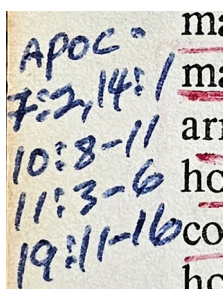 APOC.
7:2, 14:1
10:8-11
11:3-6
19:11-16
ma
ma
hc
co
hc